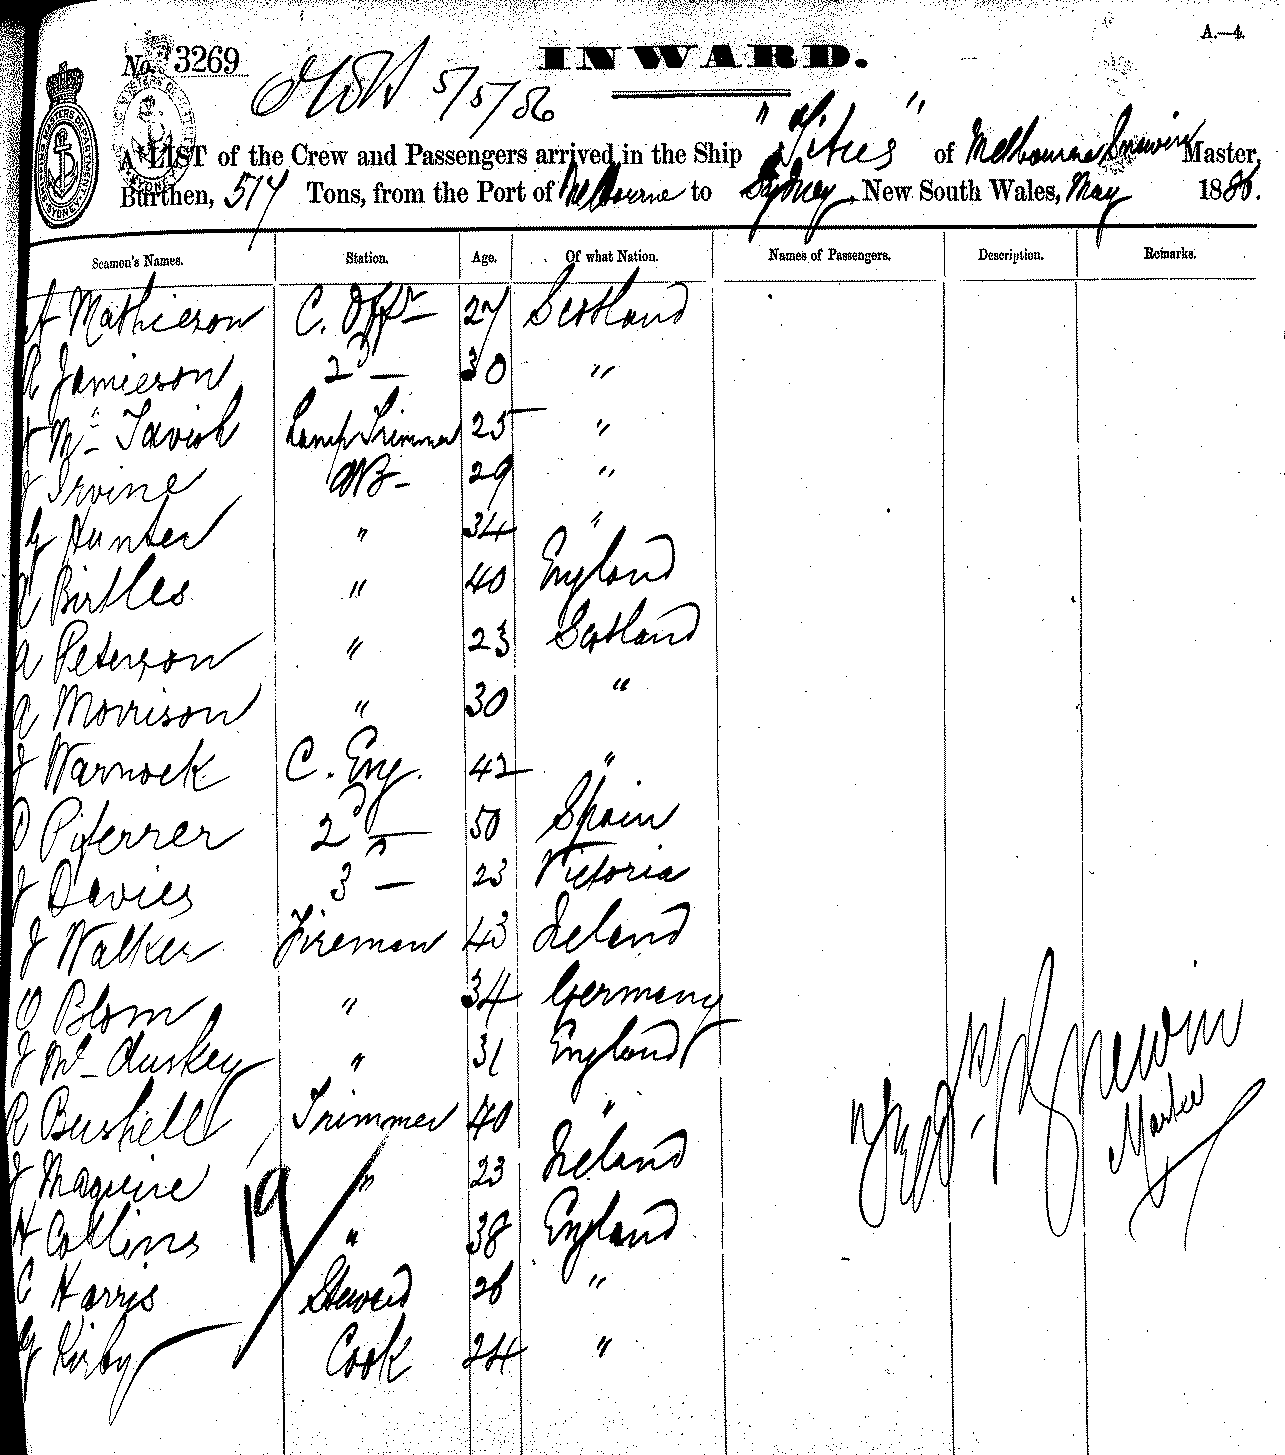 A.—4.
No. 3269
INWARD.
5/5/86
A LIST of the Crew and Passengers arrived in the Ship "Titus" of Melbourne Master,
Burthen, 517 Tons, from the Port of Melbourne to Sydney, New South Wales, May 1886.
Seamen's Names. Station. Age. Of what Nation. Names of Passengers. Description. Remarks.
A Mathieson C. Offr 27 Scotland
R Jamieson 2d — 30 "
J Mc Tavish Lamp Trimmer 25 "
J Irvine AB — 29 "
G Hunter " 34 "
Birtles " 40 England
A Peterson " 23 Scotland
A Morrison " 30 "
J Warnock C. Eng. 42 "
Piferrer 2d — 50 Spain
J Davies 3 — 23 Victoria
J Walker Fireman 43 Ireland
O Blom " 34 Germany
J Mc Cluskey " 31 England
R Bushell Trimmer 40 "
J Maguire " 23 Ireland
H Collins " 38 England
C Harris Steward 26 "
G Kirby Cook 24 "
19
Master